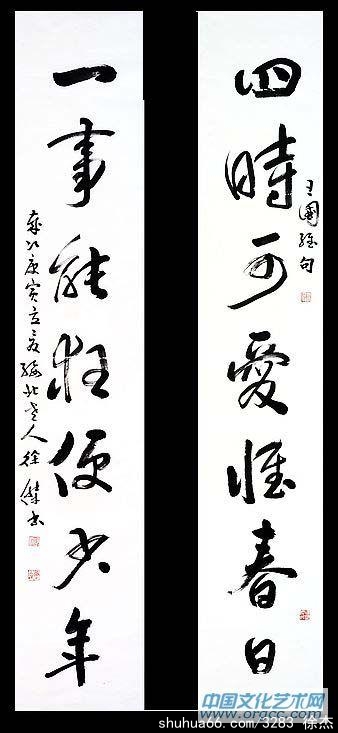 四時可愛惟春日
王國維句
一事能狂便少年
歲次庚寅立夏
老人徐傑書
中国文化艺术网
www.orgcc.com
shuhua66.com/3283 徐杰